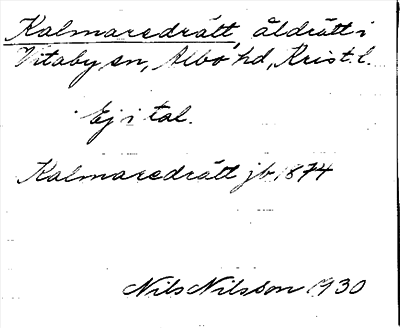 Kalmaredrätt, åldrätt i
Vitaby sn, Albo hd, Krist. l.
Ej i tal.
Kalmaredrätt jb. 1874
Nils Nilsson 1930